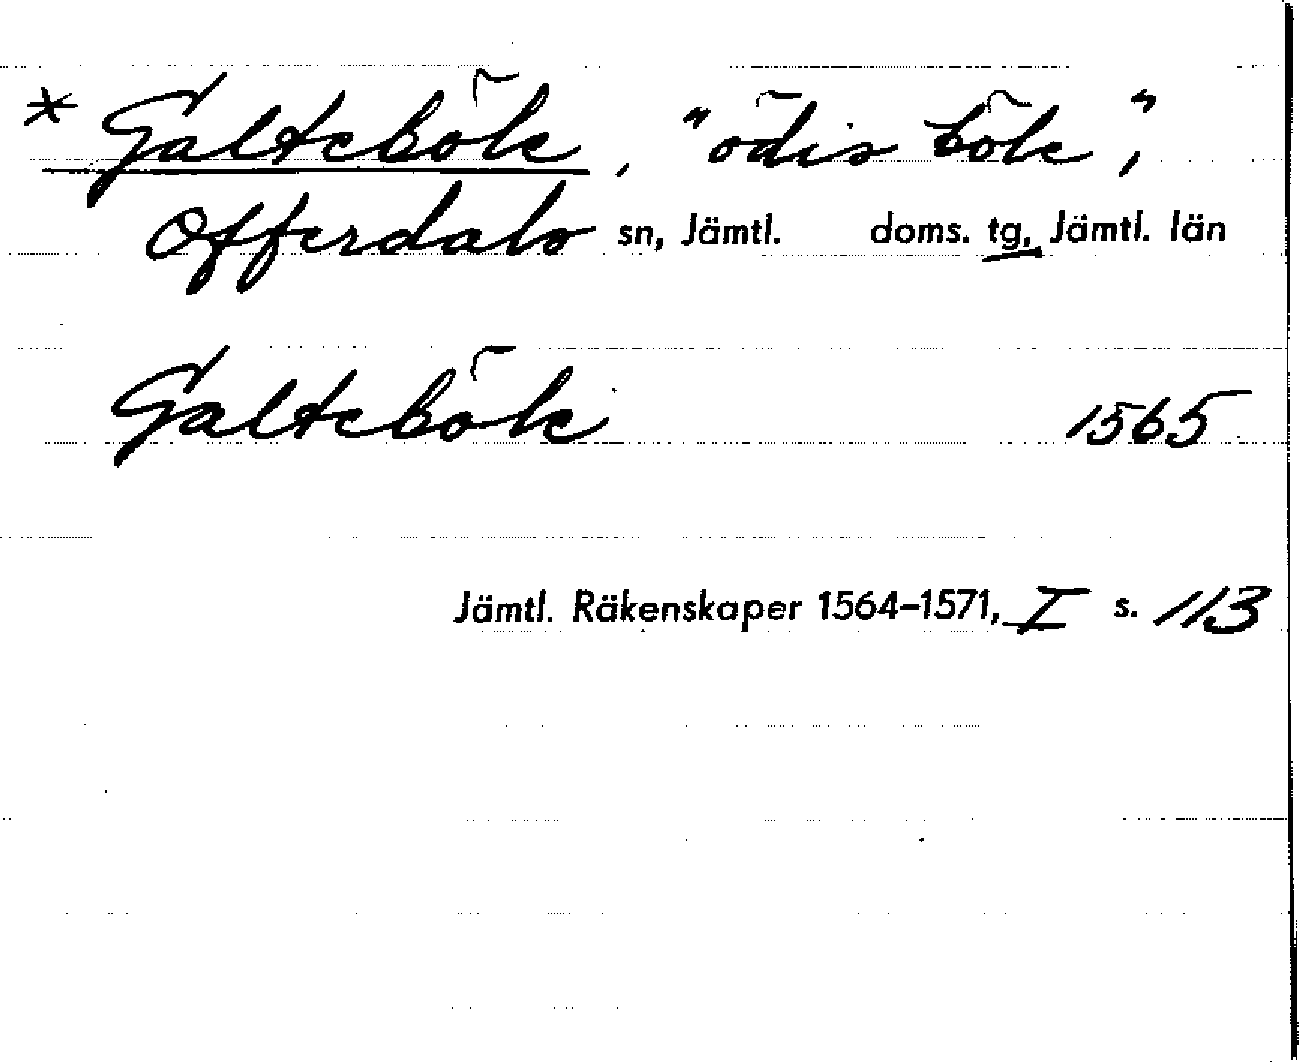 * Galteböle, "ödis böle",
Offerdals sn, Jämtl. doms. tg, Jämtl. län
Galteböle 1565
Jämtl. Räkenskaper 1564-1571, I s. 113